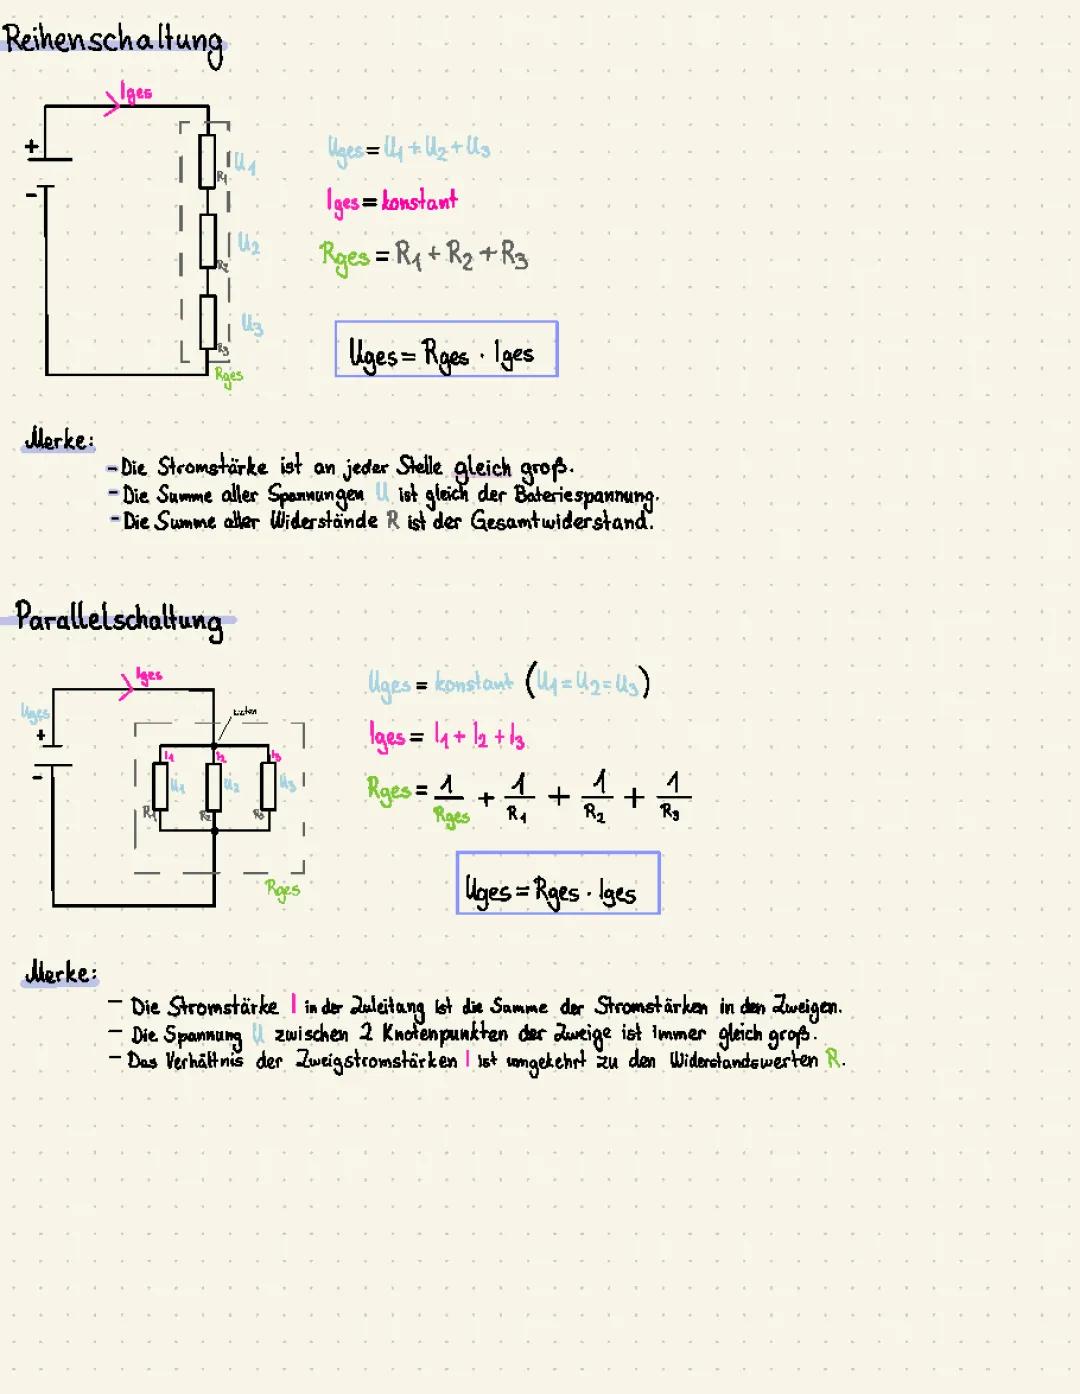 Reihenschaltung
Iges
+
-
R1
U1
R2
U2
R3
U3
Rges
Uges = U1 + U2 + U3
Iges = konstant
Rges = R1 + R2 + R3
Uges = Rges · Iges
Merke:
- Die Stromstärke ist an jeder Stelle gleich groß.
- Die Summe aller Spannungen U ist gleich der Bateriespannung.
- Die Summe aller Widerstände R ist der Gesamtwiderstand.
Parallelschaltung
Iges
Uges
+
-
Knoten
I1 I2 I3
U1 U2 U3
R1 R2 R3
Rges
Uges = konstant (U1=U2=U3)
Iges = I1 + I2 + I3
Rges = 1/Rges + 1/R1 + 1/R2 + 1/R3
Uges = Rges · Iges
Merke:
- Die Stromstärke I in der Zuleitung ist die Summe der Stromstärken in den Zweigen.
- Die Spannung U zwischen 2 Knotenpunkten der Zweige ist immer gleich groß.
- Das Verhältnis der Zweigstromstärken I ist umgekehrt zu den Widerstandswerten R.